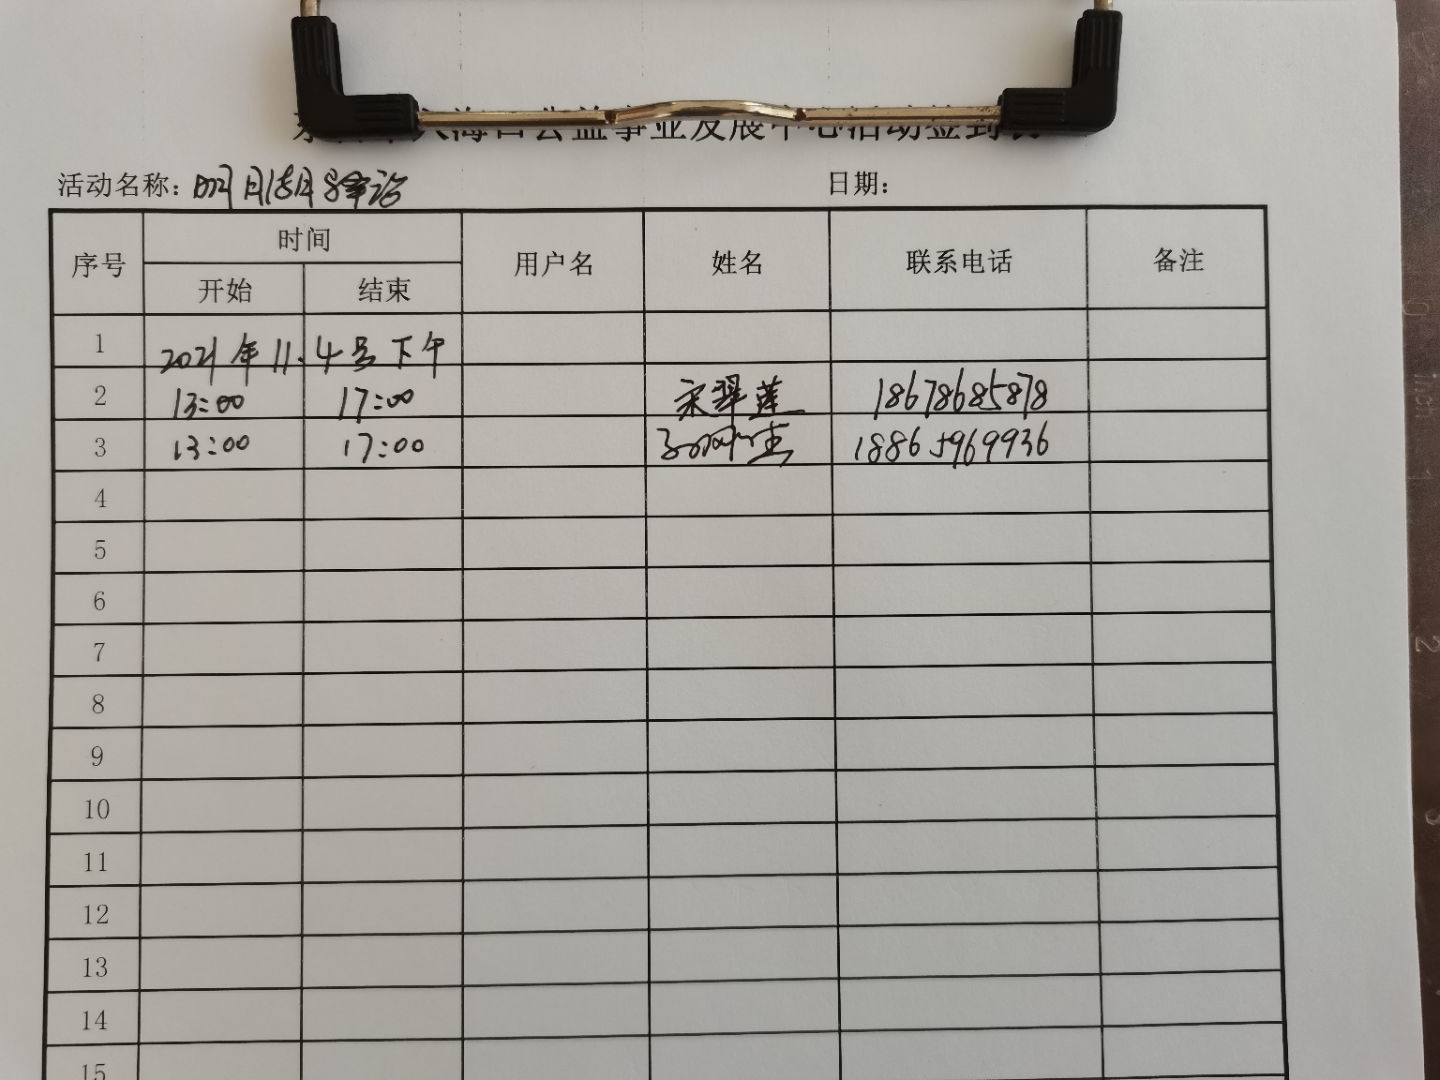 海口公益事业发展中心活动签到表
活动名称：
日期：
序号 时间 用户名 姓名 联系电话 备注
开始 结束
1 2021年11.4号下午
2 13:00 17:00 宋翠莲 18678685878
3 13:00 17:00 18865969936
4
5
6
7
8
9
10
11
12
13
14
15